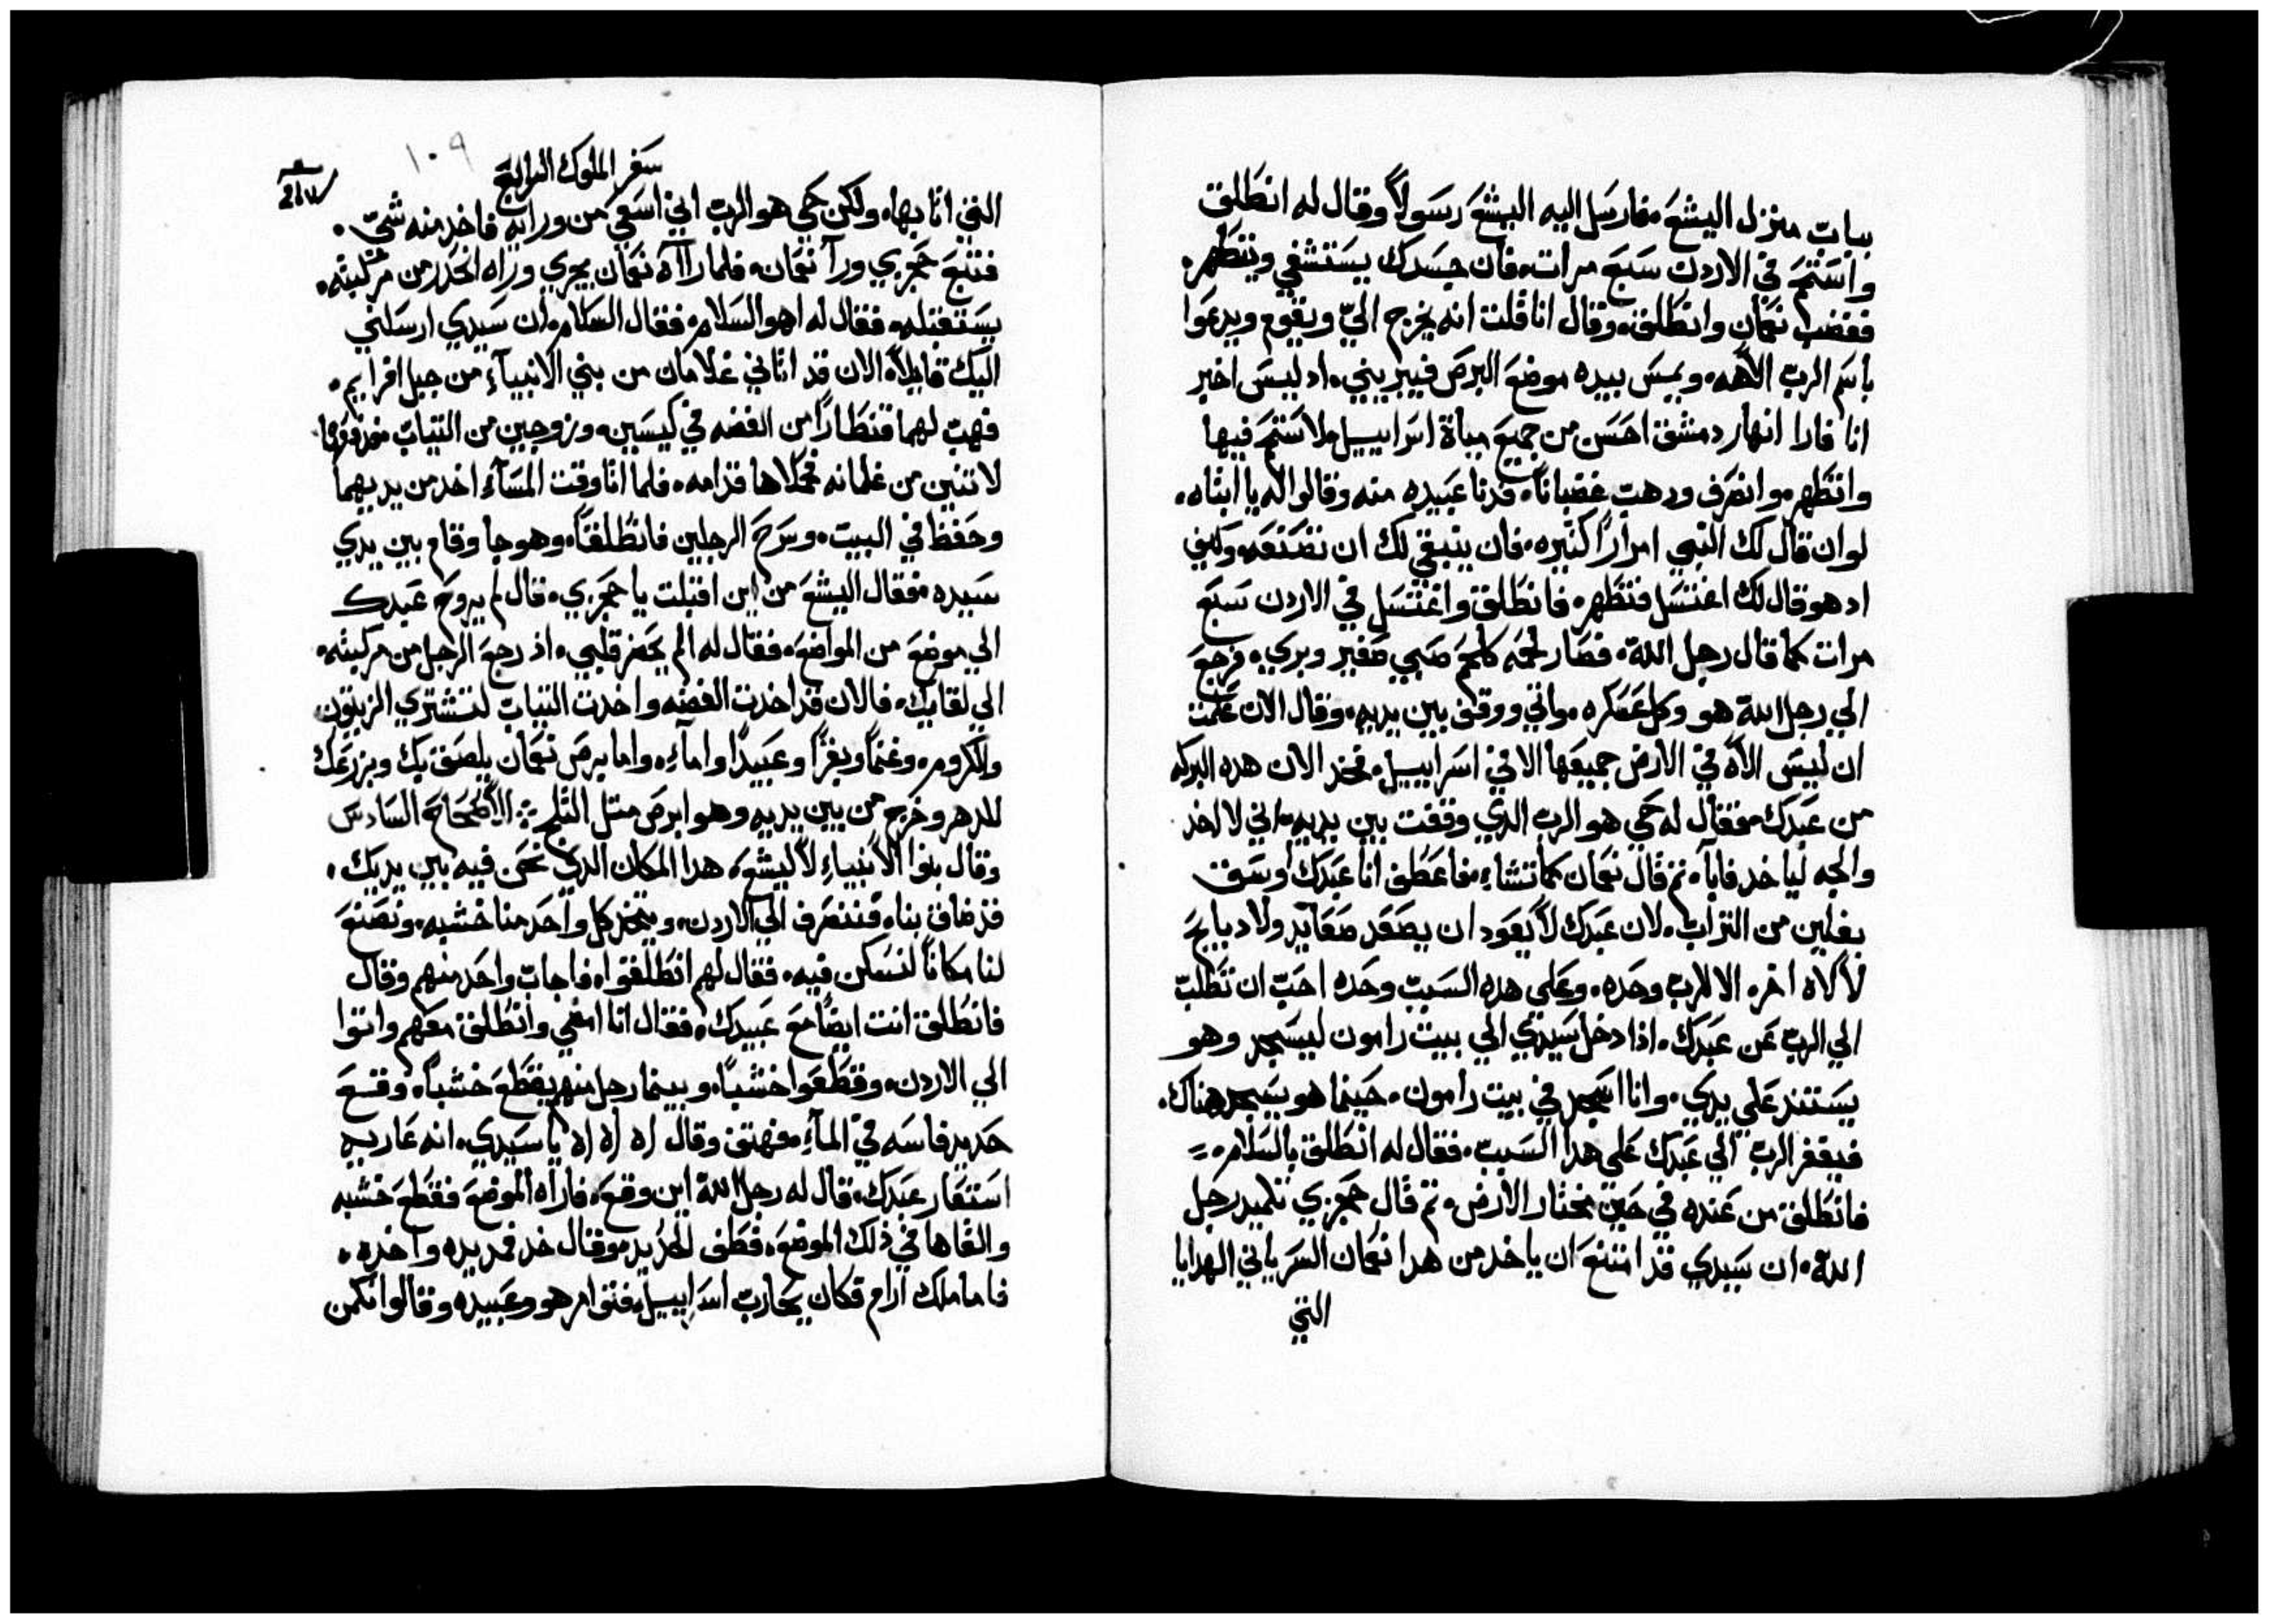 بباب منزل اليشع، فارسل اليه اليشع رسولاً وقال له انطلق
واستحم في الاردن سبع مرات، فان جسدك يستشفي ويتطهر،
فغضب نعمان وانطلق، وقال انا قلت انه يخرج اليّ ويقوم ويدعوا
باسم الرب الاهه، ويمس بيده موضع البرص فيبريني، اد ليس اخير
انا فارا انهار دمشق احسن من جميع مياة اسراييل، لاستحم فيها
واتطهر، وانصرف ودهب غضباناً، فدنا عبيده منه وقالوا له يا ابتاه،
لو ان قال لك النبي امراراً كتيره، فان ينبغي لك ان تصنعه، وكيف
اد هو قال لك اغتسل فتطهر، فانطلق واغتسل في الاردن سبع
مرات كما قال رجل الله، فصار لحمه كلحم صبي صغير وبري، فرجع
الي رجل الله هو وكل عسكره، واتي ووقف بين يديه، وقال الان علمت
ان ليس الاه في الارض جميعها الا في اسراييل، فخد الان هده البركه
من عبدك، فقال له حي هو الرب الدي وقفت بين يديه، اني لا اخد
والجه لياخد فابا، تم قال نعمان كما تشاء، فاعطف انا عبدك اوسق
بغلين من التراب، لان عبدك لا يعود ان يصعد صعايد ولا دبايح
لالاه اخر، الا للرب وحده، وعلي هده السبب وحده احب ان تطلب
الي الرب عن عبدك، اذا دخل سيدي الي بيت رامون ليسجد وهو
يستند علي يدي، وانا اسجد في بيت رامون، حينما هو يسجد هناك،
فيغفر الرب الي عبدك علي هدا السبب، فقال له انطلق بالسلام،
فانطلق من عنده في حين مختار الارض، تم قال حجزي تلميد رجل
الله، ان سيدي قد امتنع ان ياخد من هدا نعمان السرياني الهدايا
التي
١٠٩
سفر الملوك الرابع
التي اتا بها، ولكن حي هو الرب اني اسعي من ورايه فاخد منه شي،
فتبع حجزي ورآ نعمان، فلما راآه نعمان يجري وراه انحدر من مركبته،
يستقبله، فقال له اهو السلام، فقال السلام، ان سيدي ارسلني
اليك قايلاً، الان قد اتاني غلامان من بني الانبيآء من جبل افرايم،
فهب لهما قنطاراً من الفضه في كيسين، وزوجين من التياب،
لاتنين من غلمانه فحملاها قدامه، فلما اتا وقت المسآء اخد من يديهما
وحفظ في البيت، وسرح الرجلين فانطلقا، وهو جا وقام بين يدي
سيده، فقال اليشع من اين اقبلت يا حجزي، قال لم يروح عبدك
الي موضع من المواضع، فقال له الم يحضر قلبي، اذ رجع الرجل من مركبته،
الي لقايك، فالان قد اخدت الفضه واخدت التياب لتشتري الزيتون
والكروم، وغنماً وبقراً وعبيداً واماء، واما برص نعمان يلصق بك وبزرعك
للدهر وخرج من بين يديه وهو ابرص متل التلج ⁘ الاصحاح السادس
وقال بنوا الانبياء لاليشع، هدا المكان الدي نحن فيه بين يديك،
قد ضاق بنا، فننصرف الي الاردن، ويتخد كل واحد منا خشبه، ونصنع
لنا مكاناً لنسكن فيه، فقال لهم انطلقوا، فاجاب واحد منهم وقال
فانطلق انت ايضاً مع عبيدك، فقال انا امضي وانطلق معهم واتوا
الي الاردن، وقطعوا خشباً، وبينما رجل منهم يقطع خشباً، وقع
حديد فاسه في المآء، فهتف وقال اه اه اه يا سيدي، انه عاريه
استعار عبدك، قال له رجل الله اين وقع، فاراه الموضع فقطع خشبه
والقاها في ذلك الموضع، فطف الحديد، وقال خد فمد يده واخده،
فاما ملك ارام فكان يحارب اسراييل، فتوامر هو وعبيده وقالوا نكمن